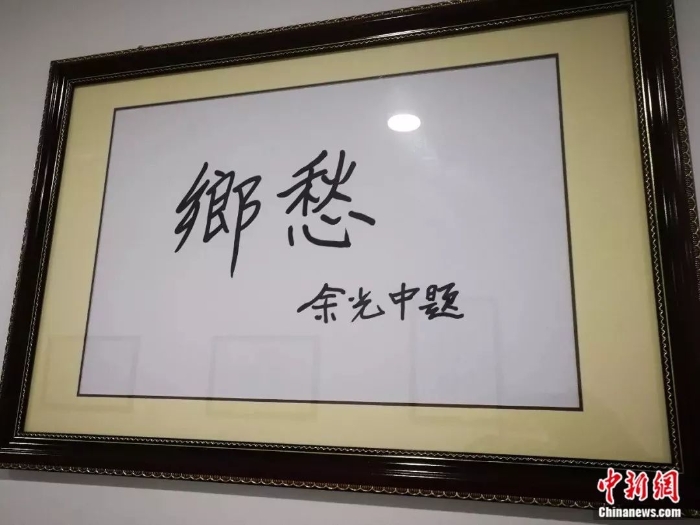 鄉愁
余光中題
中新網
Chinanews.com